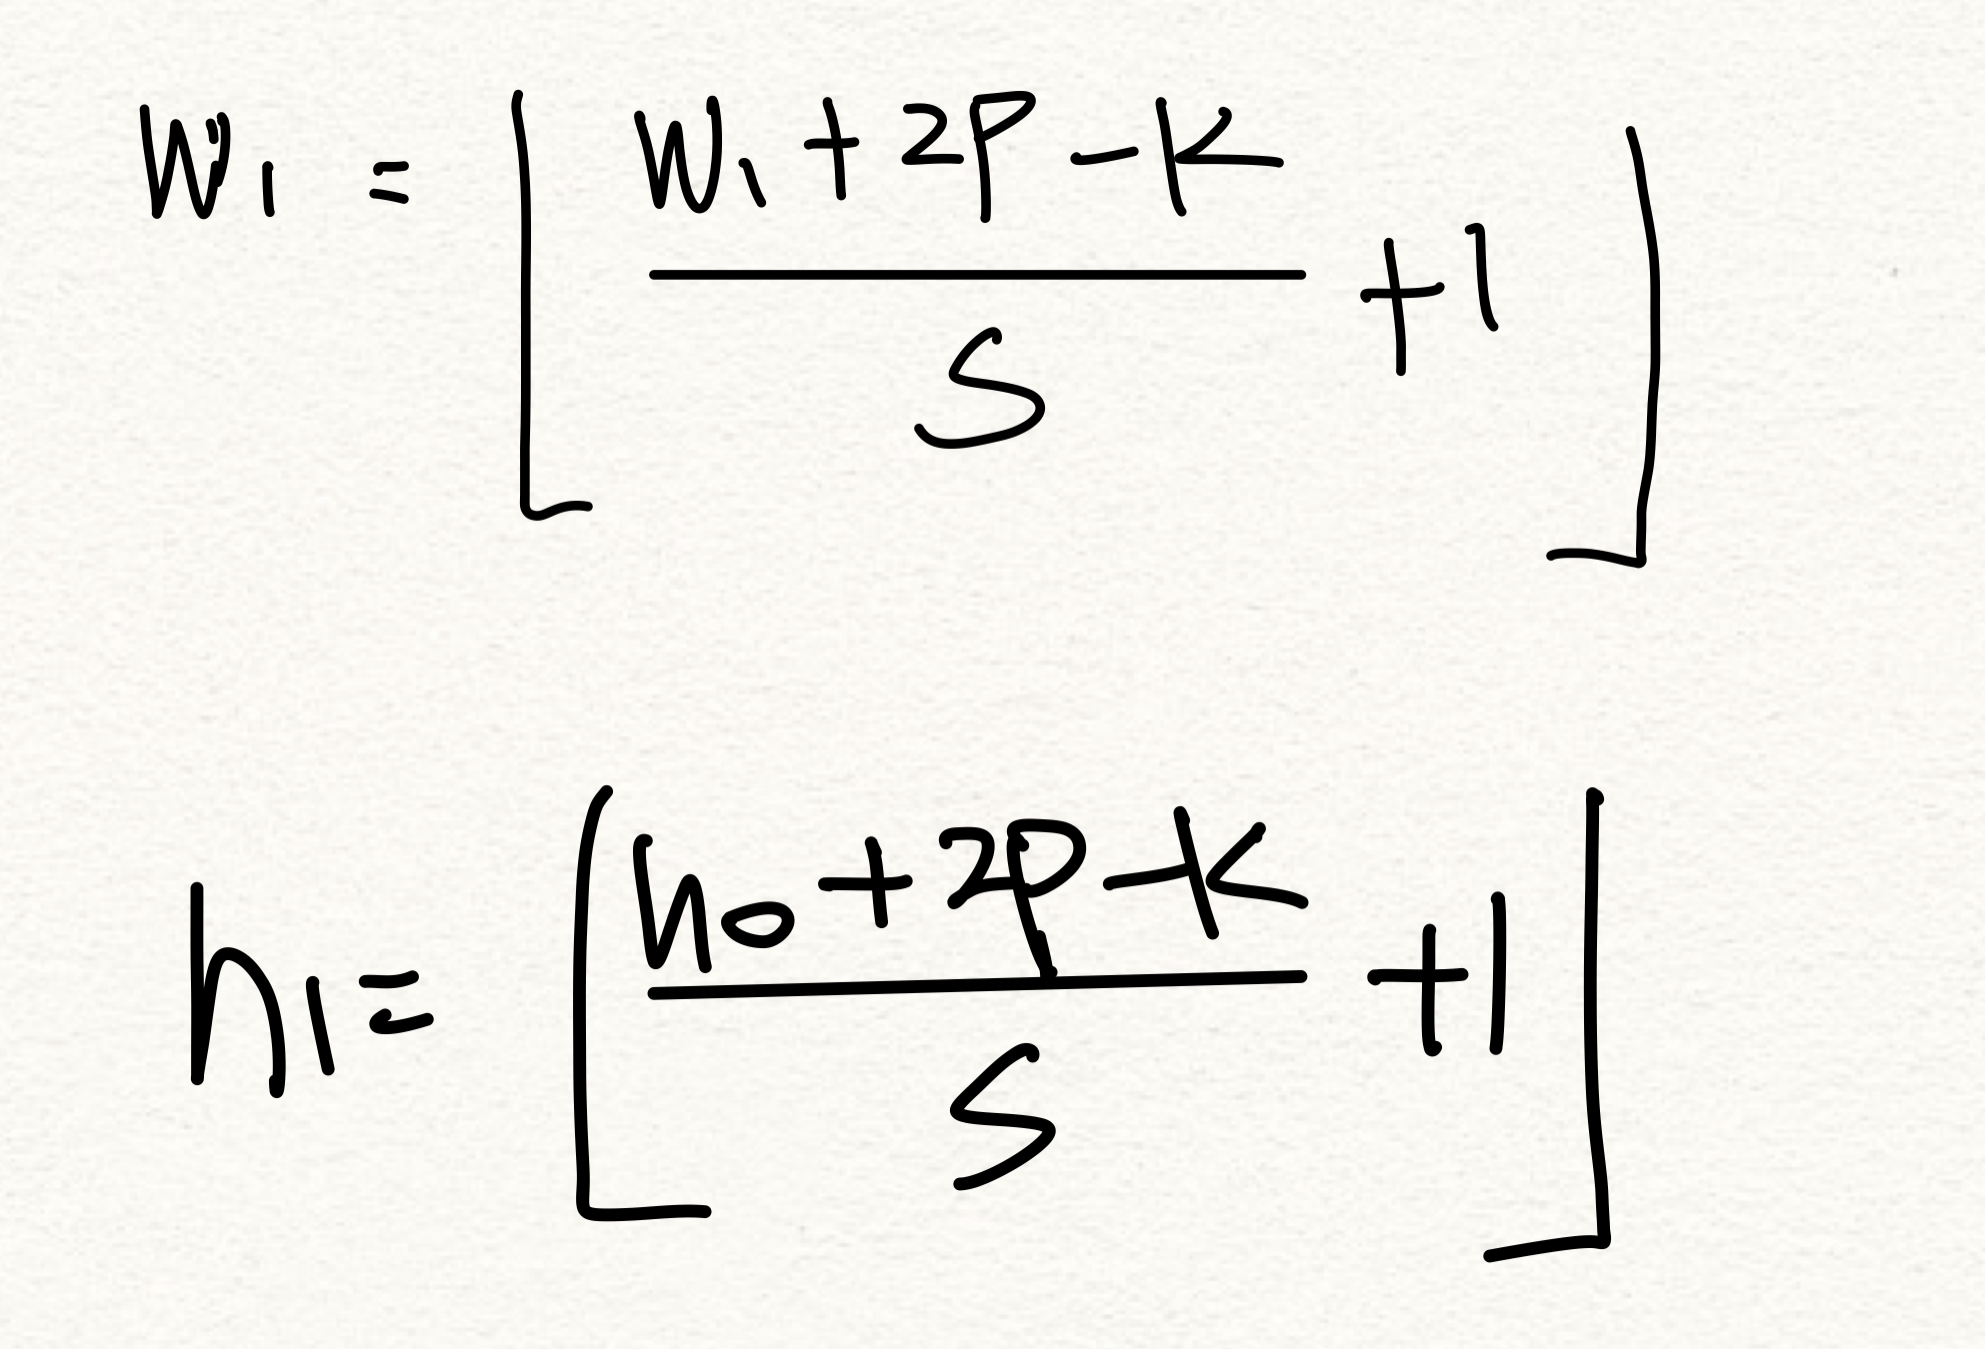 W₁ = ⌊ (W₁ + 2P - K) / S + 1 ⌋
h₁ = ⌊ (h₀ + 2P - K) / S + 1 ⌋